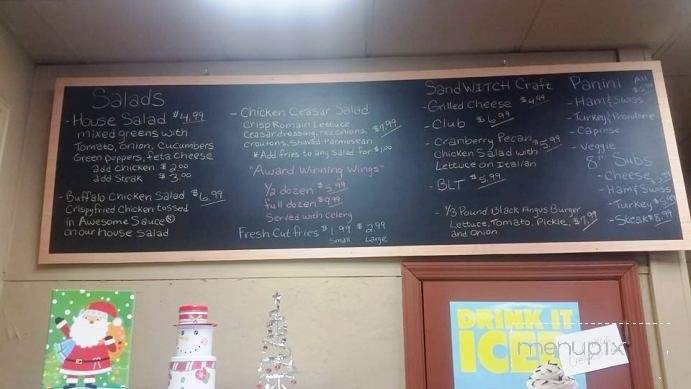 Salads
- House Salad $4.99
mixed greens with
Tomato, Onion, Cucumbers
Green peppers, feta cheese
add chicken $2.00
add Steak $3.00
- Buffalo Chicken Salad $6.99
Crispy fried Chicken tossed
in Awesome Sauce®
on our house salad
- Chicken Ceasar Salad
Crisp Romain Lettuce
Ceasar dressing, red onions, $7.99
croutons, Shaved Parmesean
*Add fries to any salad for $1.00
"Award Winning Wings"
1/2 dozen $5.99
full dozen $9.99
Served with Celery
Fresh Cut fries $1.99 $2.99
Small Large
SandWITCH Craft
- Grilled Cheese $4.99
- Club $6.99
- Cranberry Pecan $5.99
Chicken Salad with
Lettuce on Italian
- BLT $5.99
- 1/3 Pound Black Angus Burger
Lettuce, Tomato, Pickle, $7.99
and Onion
Panini all
- Ham & Swiss
- Turkey & Provolone
- Caprese
- Veggie
8" Subs
- Cheese
- Ham & Swiss
- Turkey
- Steak $8.99
DRINK IT
ICE
menupix